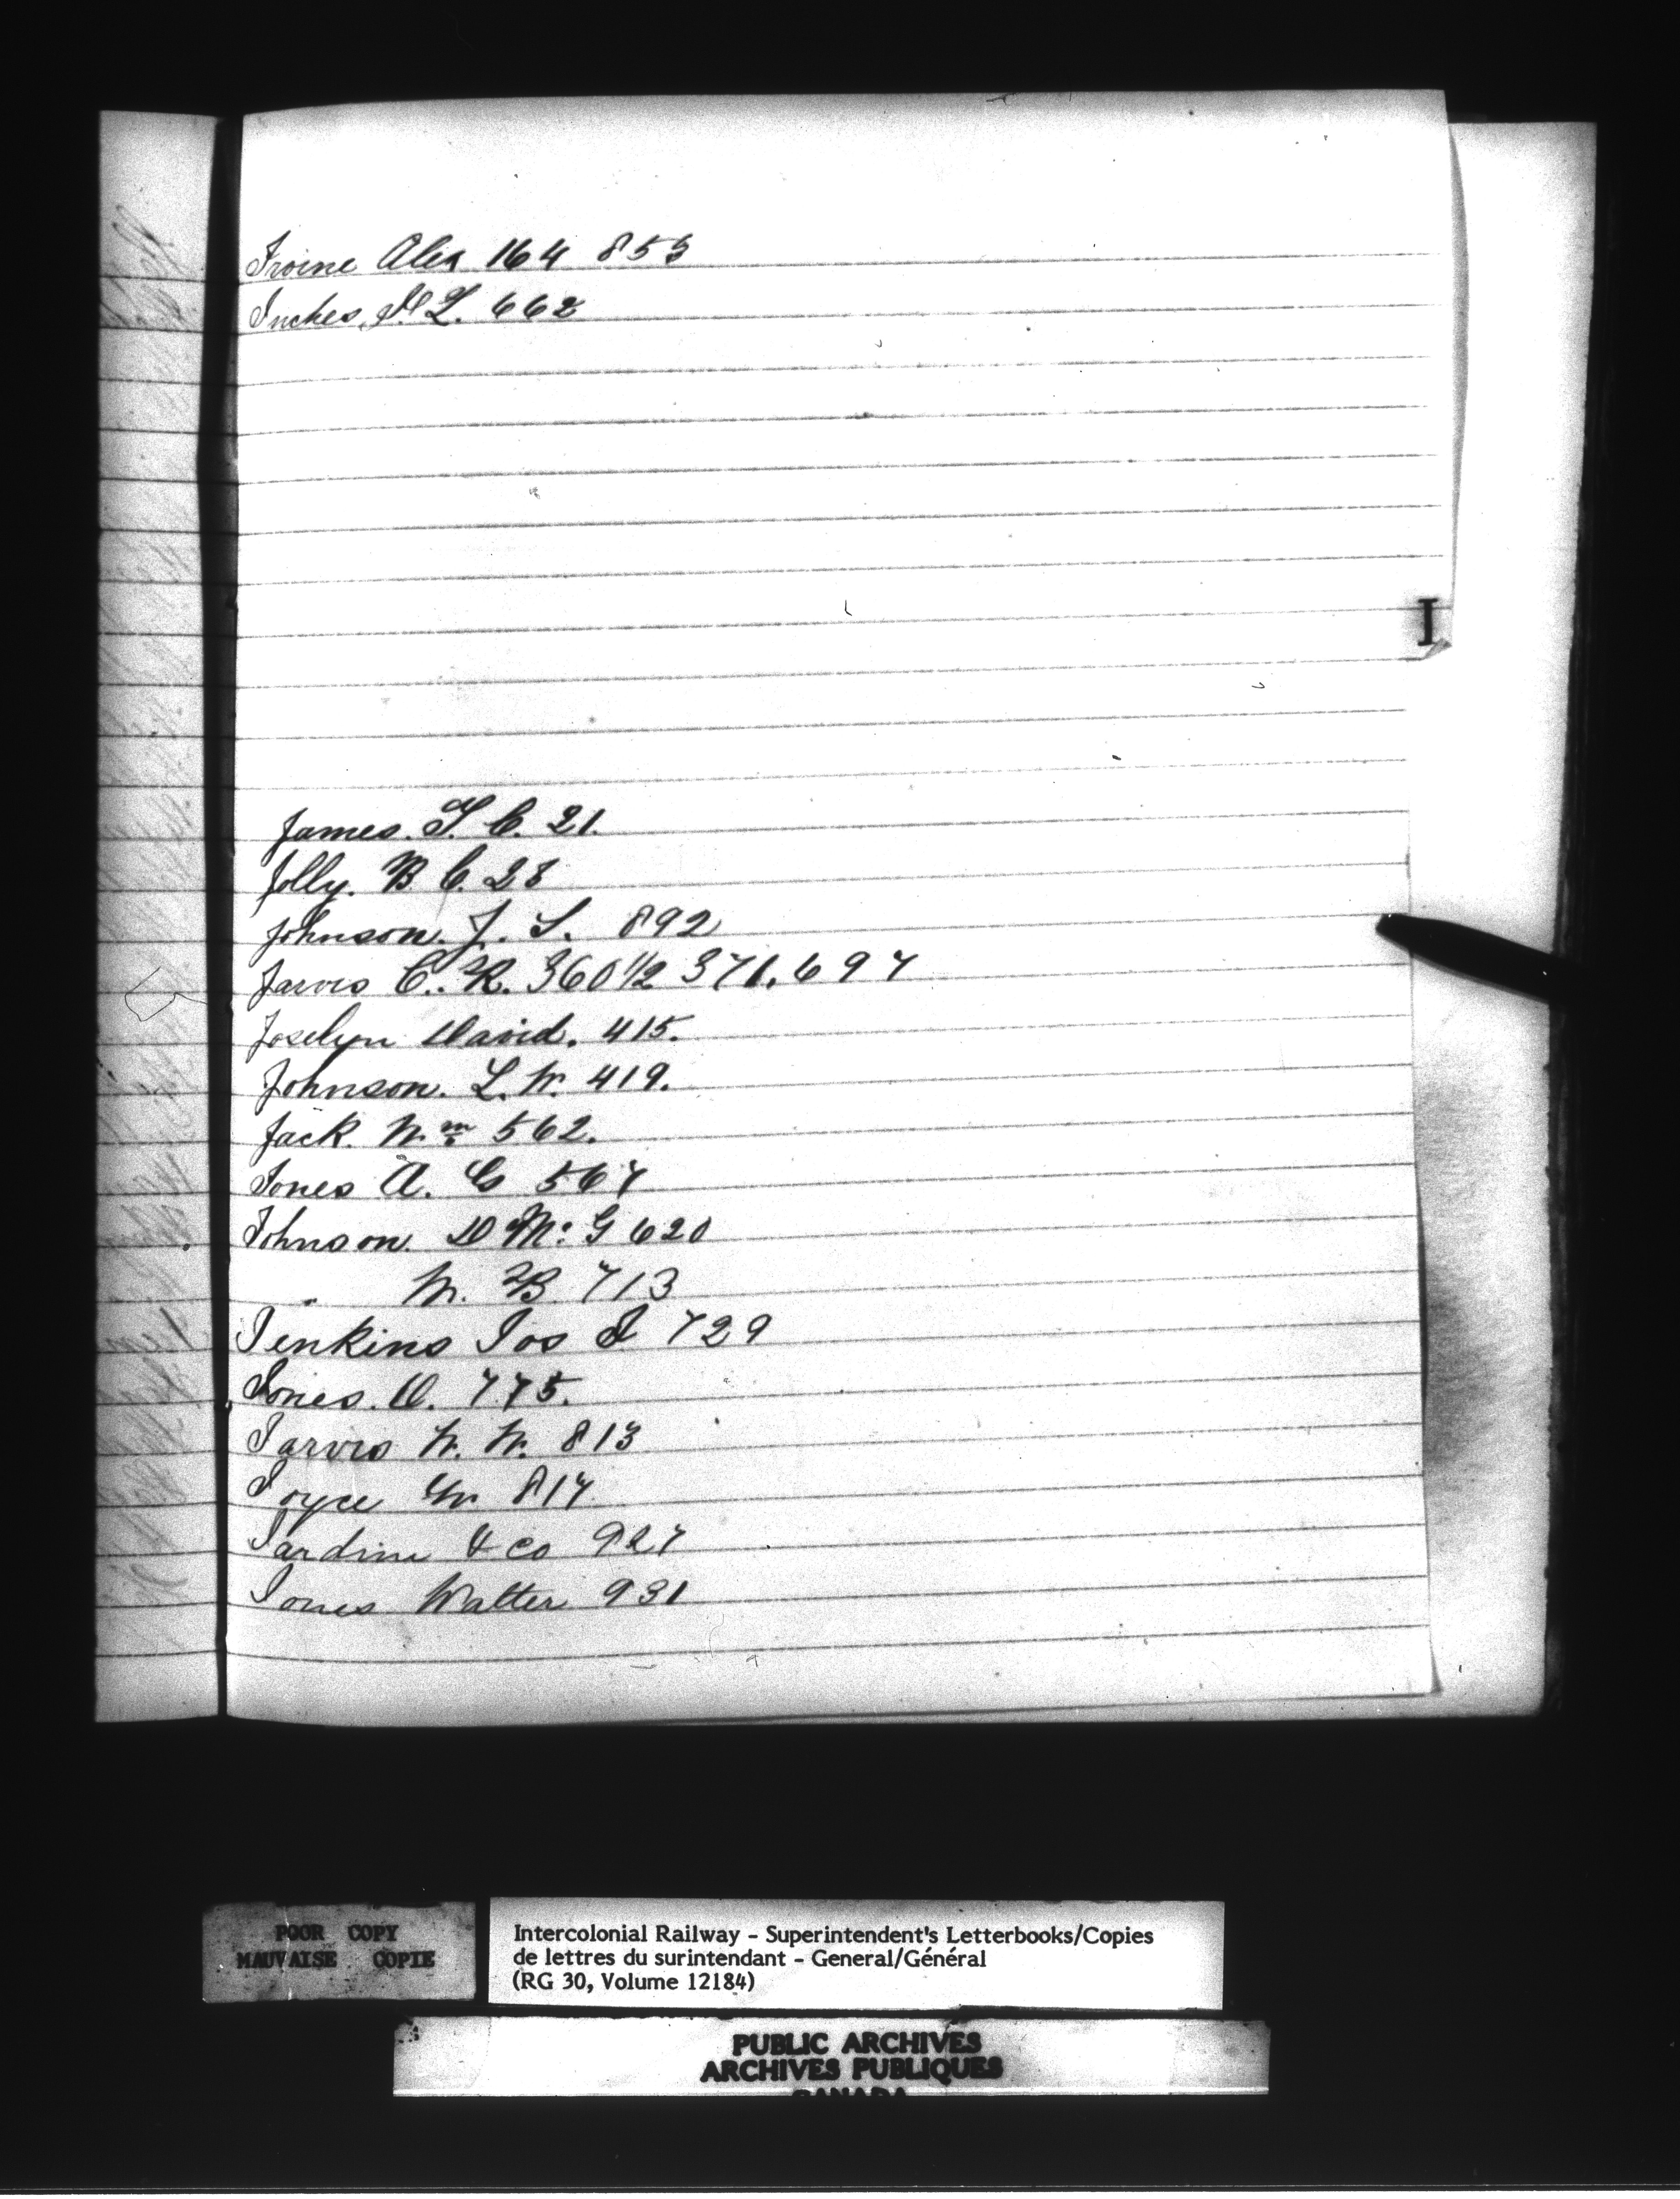 Irvine Alex 164 853
Inches, P. L. 662
I
James. T. C. 21.
Jolly. B C. 28
Johnson. J. S. 892
Jarvis C. R. 360 1/2 371. 697
Joselyn David. 415.
Johnson. L. W. 419.
Jack. Wm 562.
Jones A. G 567
Johnson. D Mc G 620
" W. B. 713
Jenkins Jos I 729
Jones. D. 775.
Jarvis W. W. 813
Joyce Wm 817
Jardine & Co 927
Jones Walter 931
POOR COPY
MAUVAISE COPIE
Intercolonial Railway - Superintendent's Letterbooks/Copies
de lettres du surintendant - General/Général
(RG 30, Volume 12184)
PUBLIC ARCHIVES
ARCHIVES PUBLIQUES
CANADA